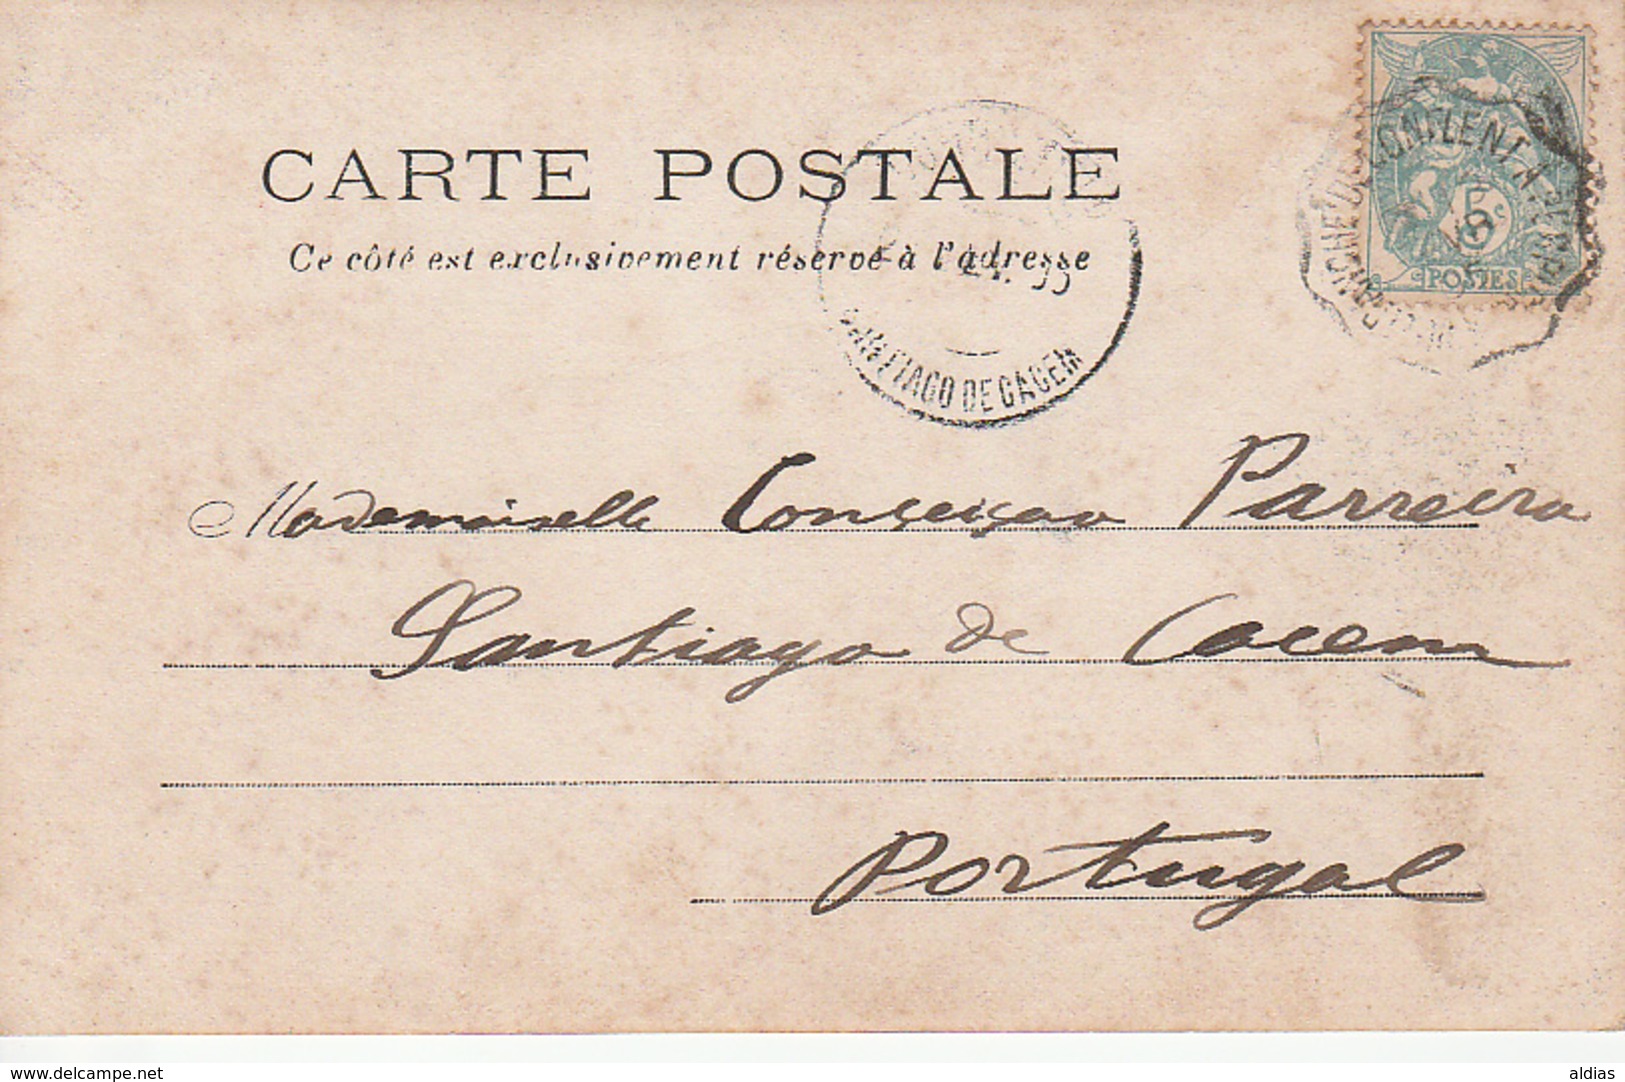 CARTE POSTALE
Ce côté est exclusivement réservé à l'adresse
SANTIAGO DE CACEM
5c
POSTES
Mademoiselle Conceiçao Parreira
Santiago de Cacem
Portugal
www.delcampe.net
aldias